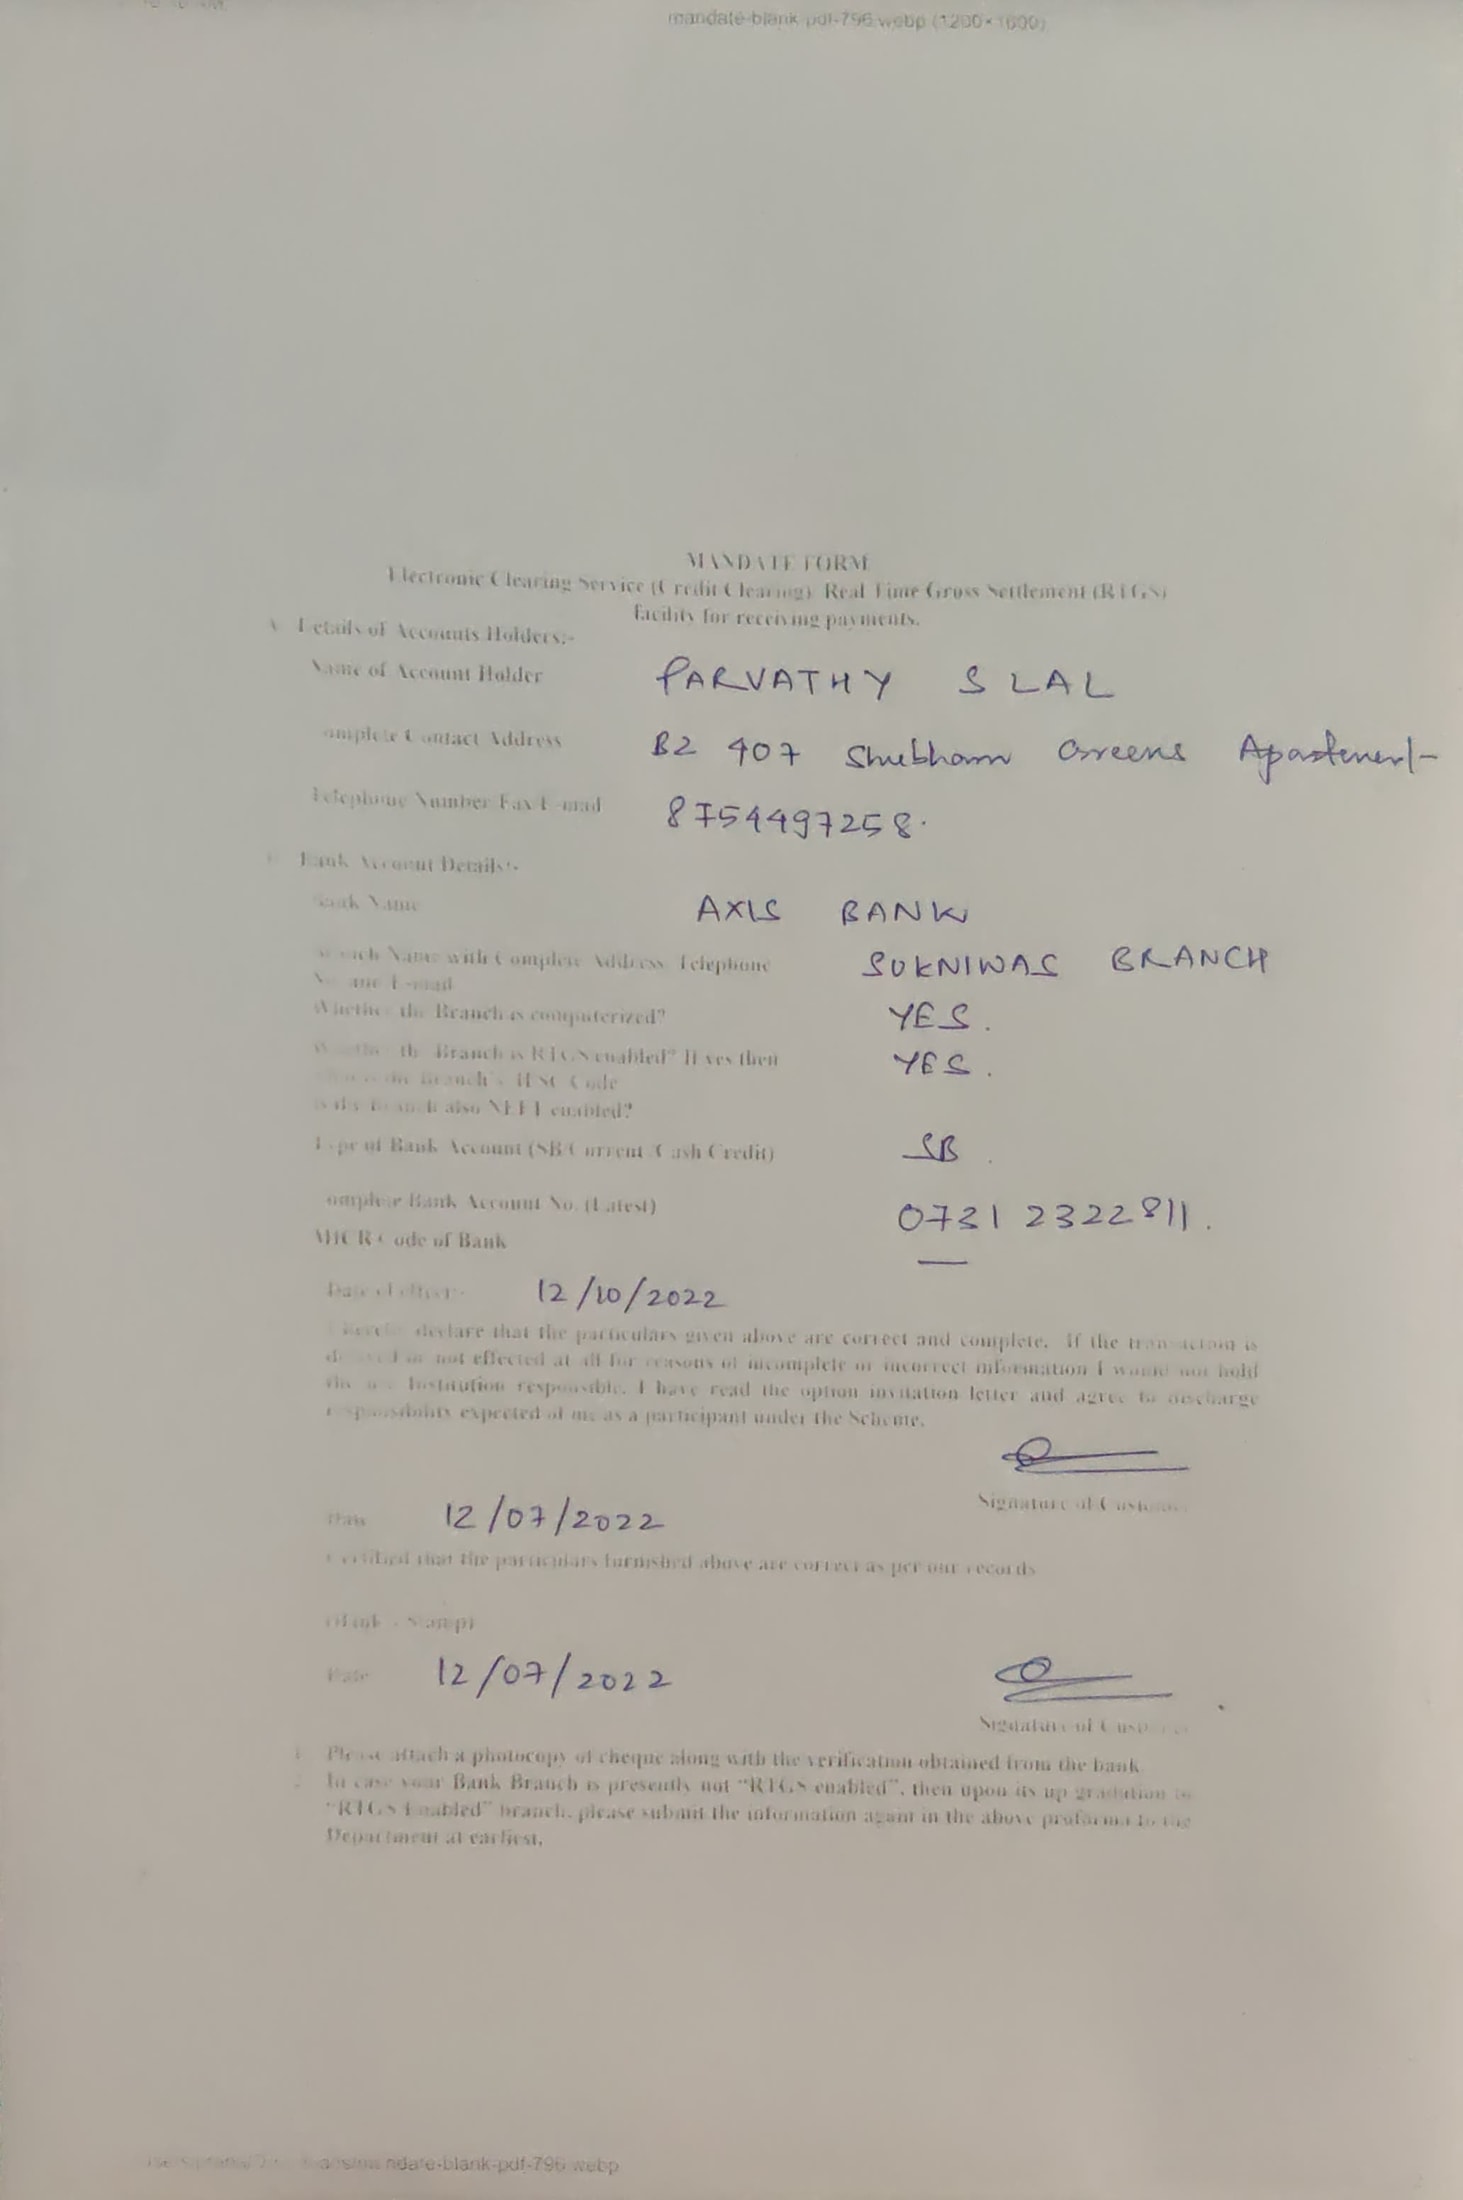 mandate-blank-pdf-796.webp (1200×1600)
MANDATE FORM
Electronic Clearing Service (Credit Clearing) Real Time Gross Settlement (RTGS)
facility for receiving payments.
Details of Accounts Holders:-
Name of Account Holder PARVATHY S LAL
Complete Contact Address B2 407 Shubham Greens Apartement
Telephone Number Fax E-mail 8754497258.
Bank Account Details:-
Bank Name AXIS BANK
Branch Name with Complete Address, Telephone SUKNIWAS BRANCH
No. and E-mail
Whether the Branch is computerized? YES.
Whether the Branch is RTGS enabled? If yes then YES.
Branch's IFSC Code
Is the Branch also NEFT enabled?
Type of Bank Account (SB/Current/Cash Credit) SB.
Complete Bank Account No. (Latest) 07312322811.
MICR Code of Bank —
Date of effect:- 12/10/2022
I hereby declare that the particulars given above are correct and complete. If the transaction is
delayed or not effected at all for reasons of incomplete or incorrect information I would not hold
the Institution responsible. I have read the option invitation letter and agree to discharge
responsibility expected of me as a participant under the Scheme.
Signature of Customer
Date 12/07/2022
Certified that the particulars furnished above are correct as per our records
(Bank's Stamp)
Date 12/07/2022
Signature of Customer
1. Please attach a photocopy of cheque along with the verification obtained from the bank.
2. In case your Bank Branch is presently not "RTGS enabled", then upon its up gradation to
"RTGS Enabled" branch, please submit the information again in the above proforma to the
Department at earliest.
mandate-blank-pdf-796.webp